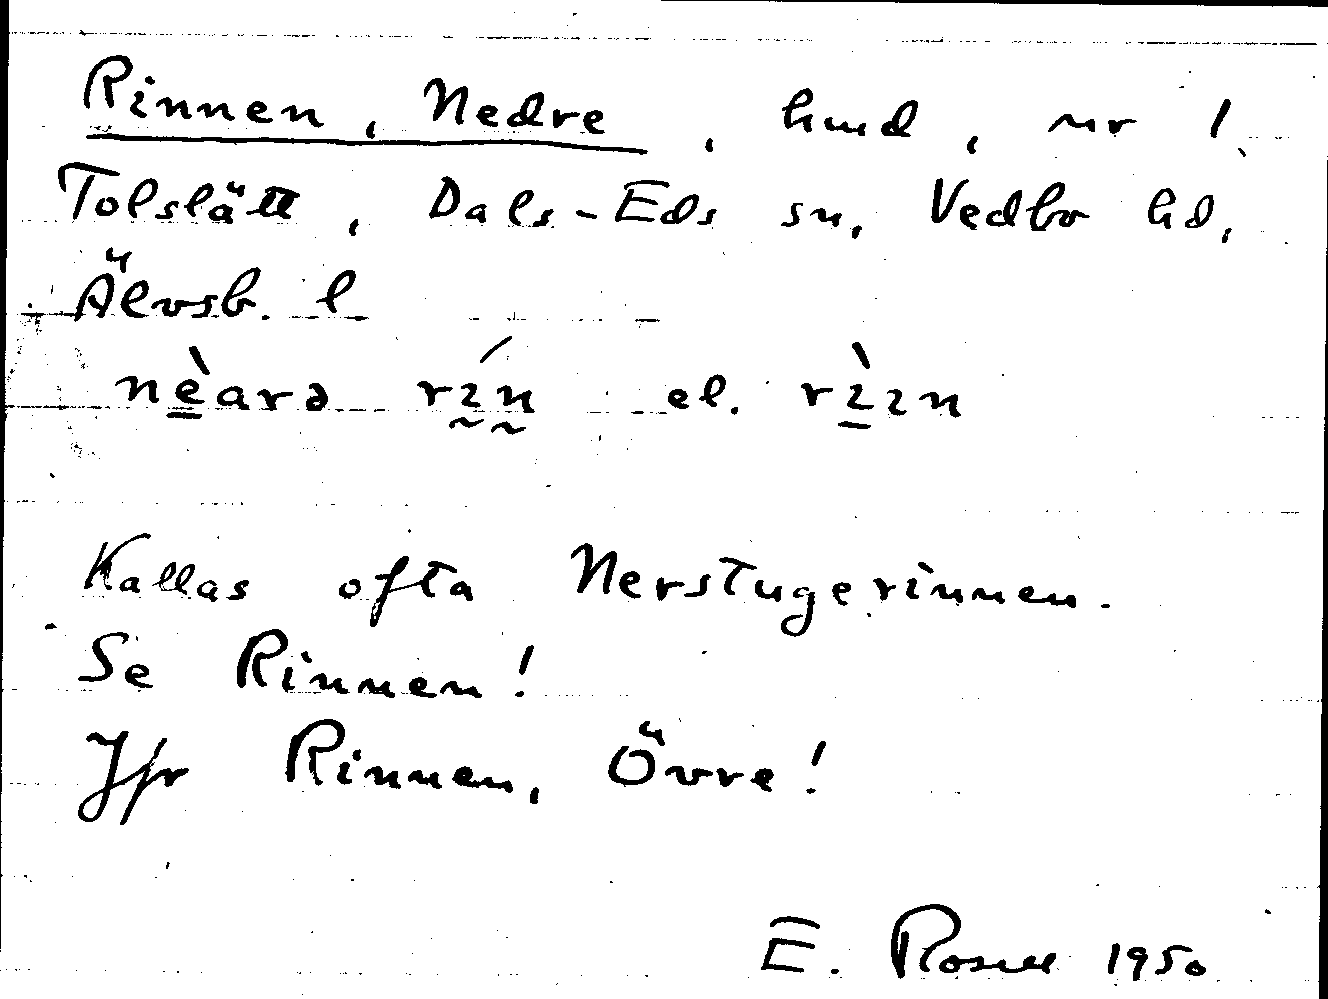 Rinnen, Nedre, hmd, nr 1
Tolslätt, Dals-Eds sn, Vedbo hd,
Älvsb. l
nèarə rín el. rìın
Kallas ofta Nerstugerinnen.
Se Rinnen!
Jfr Rinnen, Övre!
E. Rosell 1950